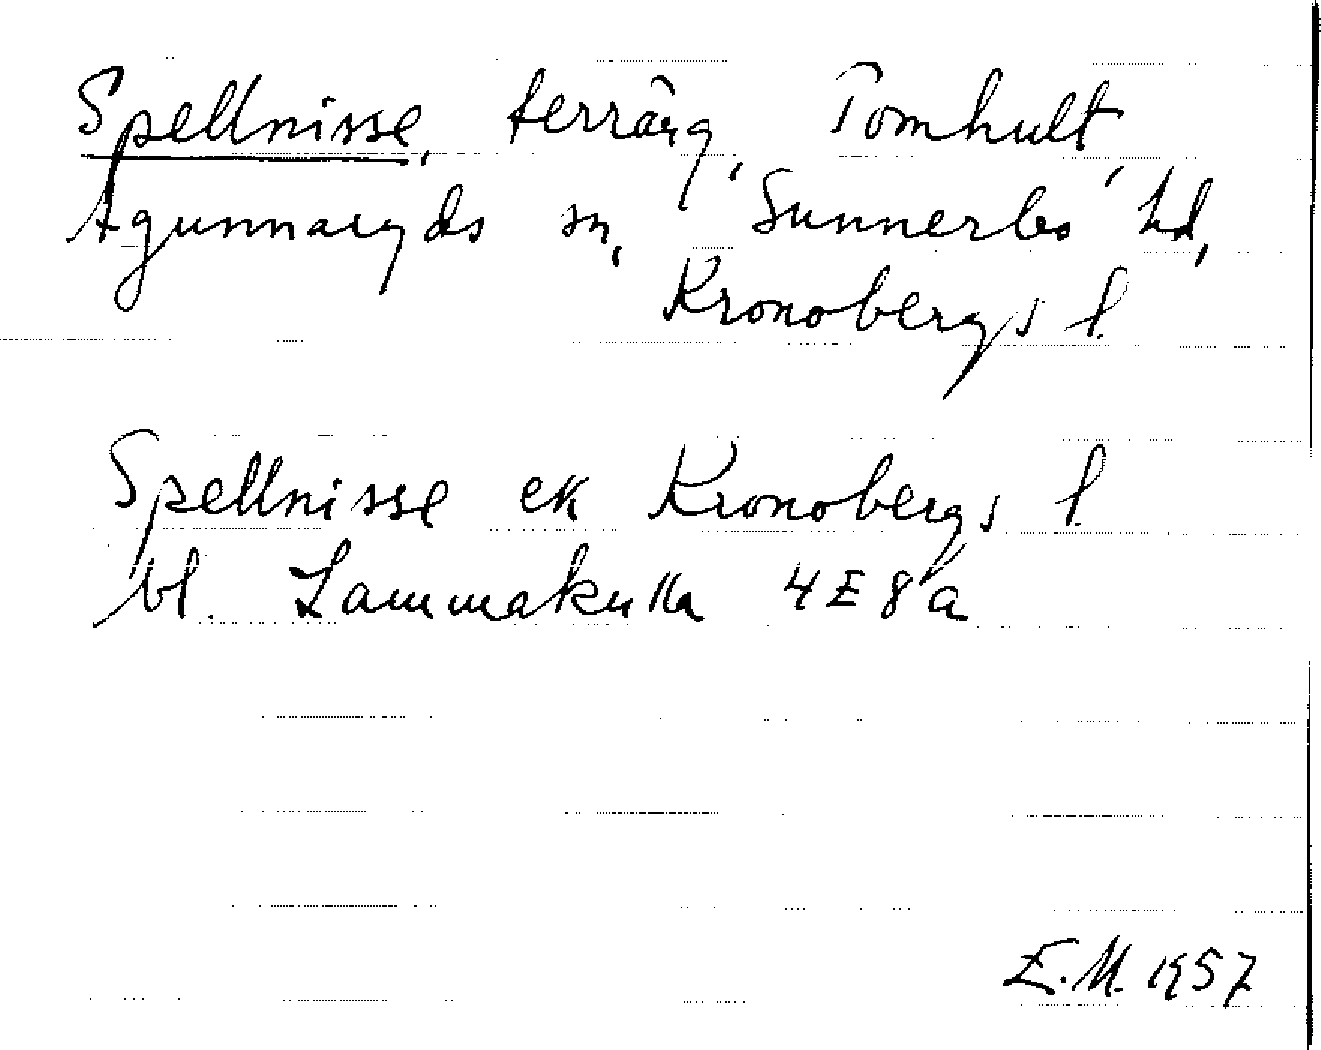 Spellnisse, terräng, Tomhult,
Agunnaryds sn, Sunnerbo hd,
Kronobergs l.
Spellnisse ek Kronobergs l.
bl. Lammakulla 4E8a
E.M. 1957